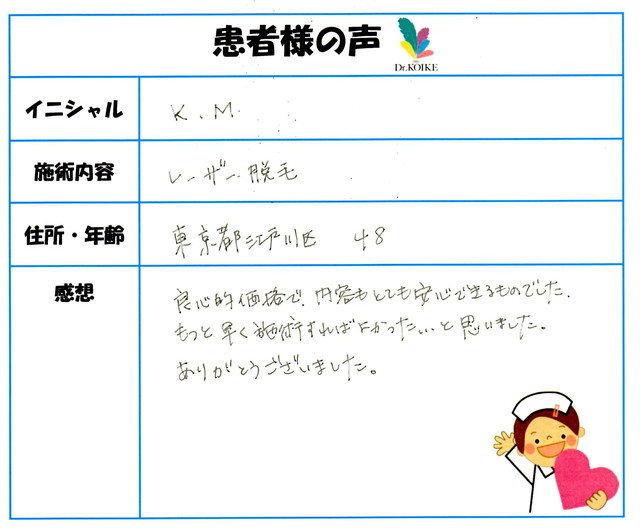 患者様の声
Dr.KOIKE
イニシャル K.M.
施術内容 レーザー脱毛
住所・年齢 東京都江戸川区 48
感想 良心的価格で、内容もとても安心できるものでした.
もっと早く施術すればよかった...と思いました。
ありがとうございました。